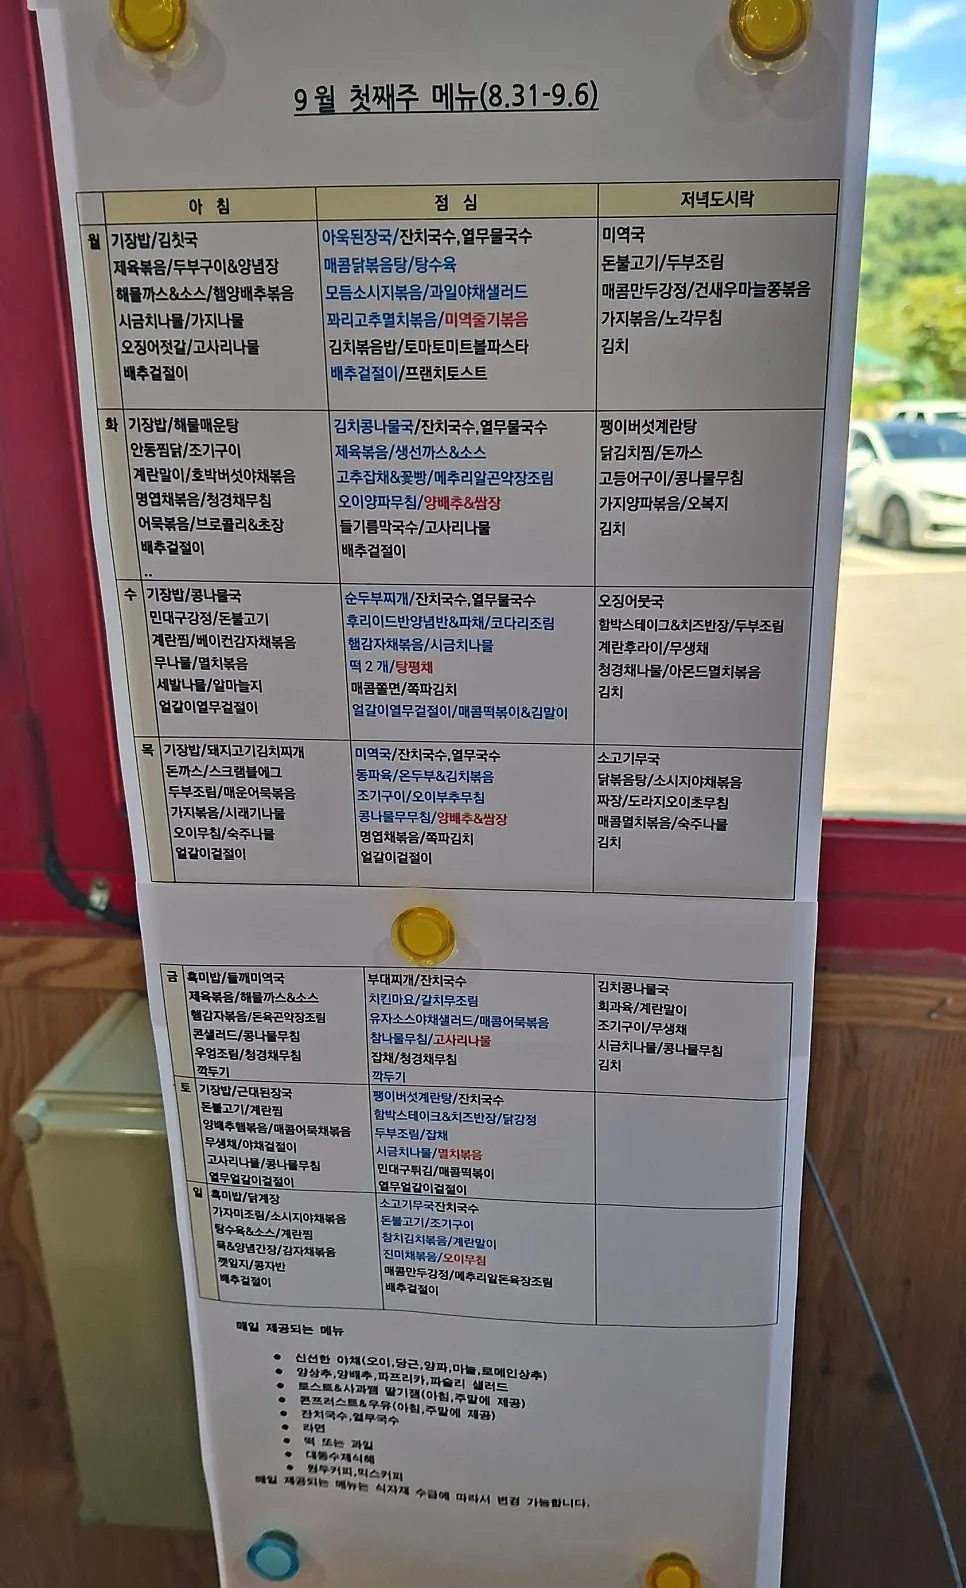 9월 첫째주 메뉴(8.31-9.6)
아 침 점 심 저녁도시락
월
기장밥/김칫국
제육볶음/두부구이&양념장
해물까스&소스/햄양배추볶음
시금치나물/가지나물
오징어젓갈/고사리나물
배추겉절이
아욱된장국/잔치국수,열무물국수
매콤닭볶음탕/탕수육
모듬소시지볶음/과일야채샐러드
꽈리고추멸치볶음/미역줄기볶음
김치볶음밥/토마토미트볼파스타
배추겉절이/프랜치토스트
미역국
돈불고기/두부조림
매콤만두강정/건새우마늘쫑볶음
가지볶음/노각무침
김치
화
기장밥/해물매운탕
안동찜닭/조기구이
계란말이/호박버섯야채볶음
명엽채볶음/청경채무침
어묵볶음/브로콜리&초장
배추겉절이
..
김치콩나물국/잔치국수,열무물국수
제육볶음/생선까스&소스
고추잡채&꽃빵/메추리알곤약장조림
오이양파무침/양배추&쌈장
들기름막국수/고사리나물
배추겉절이
팽이버섯계란탕
닭김치찜/돈까스
고등어구이/콩나물무침
가지양파볶음/오복지
김치
수
기장밥/콩나물국
민대구강정/돈불고기
계란찜/베이컨감자채볶음
무나물/멸치볶음
세발나물/알마늘지
얼갈이열무겉절이
순두부찌개/잔치국수,열무물국수
후라이드반양념반&파채/코다리조림
햄감자채볶음/시금치나물
떡 2 개/탕평채
매콤쫄면/쪽파김치
얼갈이열무겉절이/매콤떡볶이&김말이
오징어뭇국
함박스테이크&치즈반장/두부조림
계란후라이/무생채
청경채나물/아몬드멸치볶음
김치
목
기장밥/돼지고기김치찌개
돈까스/스크램블에그
두부조림/매운어묵볶음
가지볶음/시래기나물
오이무침/숙주나물
얼갈이겉절이
미역국/잔치국수,열무국수
동파육/온두부&김치볶음
조기구이/오이부추무침
콩나물무무침/양배추&쌈장
명엽채볶음/쪽파김치
얼갈이겉절이
소고기무국
닭볶음탕/소시지야채볶음
짜장/도라지오이초무침
매콤멸치볶음/숙주나물
김치
금
흑미밥/들깨미역국
제육볶음/해물까스&소스
햄감자볶음/돈육곤약장조림
콘샐러드/콩나물무침
우엉조림/청경채무침
깍두기
부대찌개/잔치국수
치킨마요/갈치무조림
유자소스야채샐러드/매콤어묵볶음
참나물무침/고사리나물
잡채/청경채무침
깍두기
김치콩나물국
회과육/계란말이
조기구이/무생채
시금치나물/콩나물무침
김치
토
기장밥/근대된장국
돈불고기/계란찜
양배추햄볶음/매콤어묵채볶음
무생채/야채겉절이
고사리나물/콩나물무침
열무얼갈이겉절이
팽이버섯계란탕/잔치국수
함박스테이크&치즈반장/닭강정
두부조림/잡채
시금치나물/멸치볶음
민대구튀김/매콤떡볶이
열무얼갈이겉절이
일
흑미밥/닭계장
가자미조림/소시지야채볶음
탕수육&소스/계란찜
묵&양념간장/감자채볶음
깻잎지/콩자반
배추겉절이
소고기무국잔치국수
돈불고기/조기구이
참치김치볶음/계란말이
진미채볶음/오이무침
매콤만두강정/메추리알돈육장조림
배추겉절이
매일 제공되는 메뉴
● 신선한 야채(오이,당근,양파,마늘,로메인상추)
● 양상추,양배추,파프리카,파슬리 샐러드
● 토스트&사과쨈 딸기잼(아침,주말에 제공)
● 콘프러스트&우유(아침,주말에 제공)
● 잔치국수,열무국수
● 라면
● 떡 또는 과일
● 대통수제식혜
● 원두커피,믹스커피
매일 제공되는 메뉴는 식자재 수급에 따라서 변경 가능합니다.